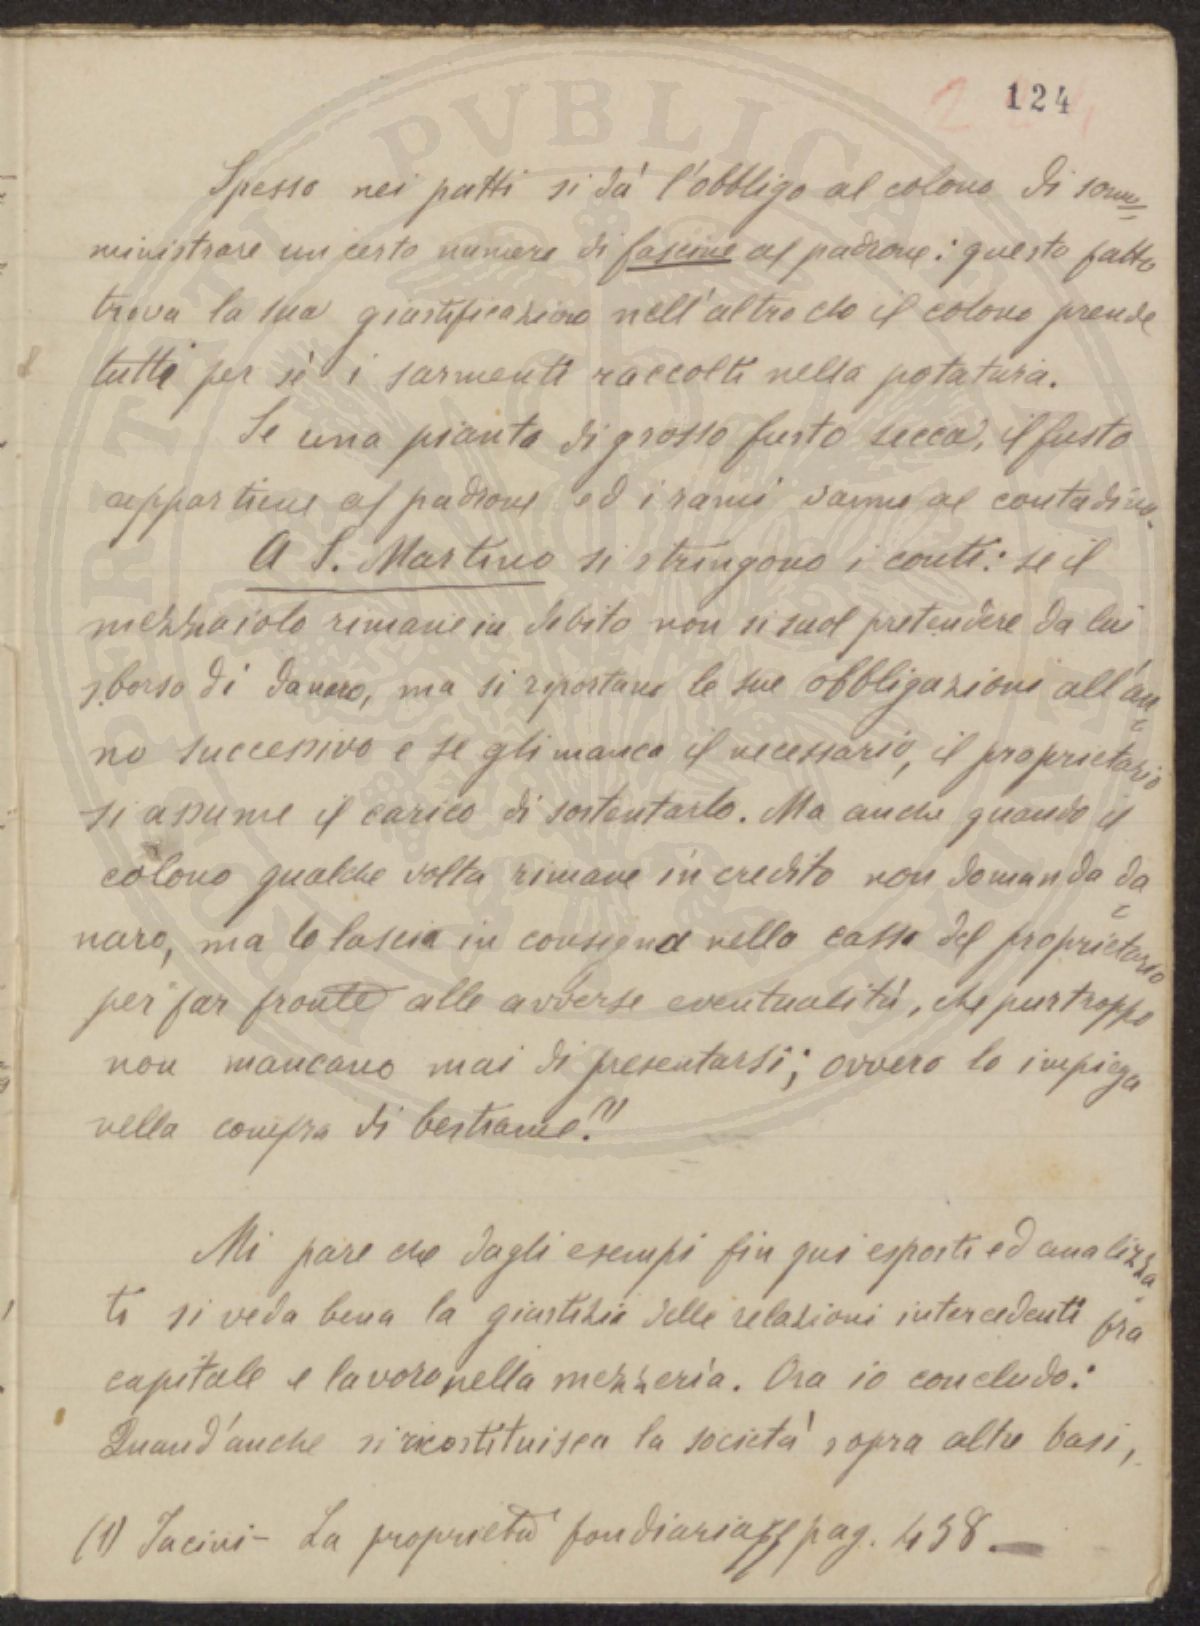 124
Spesso nei patti si dà l'obbligo al colono di som=
ministrare un certo numero di fascine al padrone: questo fatto
trova la sua giustificazione nell'altro che il colono prende
tutti per sè i sarmenti raccolti nella potatura.
Se una pianta di grosso fusto secca, il fusto
appartiene al padrone ed i rami vanno al contadino.
A S. Martino si stringono i conti: se il
mezzaiolo rimane in debito non si suol pretendere da lui
sborso di danaro, ma si riportano le sue obbligazioni all'an=
no successivo e se gli manca il necessario, il proprietario
si assume il carico di sostentarlo. Ma anche quando il
colono qualche volta rimane in credito non domanda da=
naro, ma lo lascia in consegna nella cassa del proprietario
per far fronte alle avverse eventualità, che purtroppo
non mancano mai di presentarsi; ovvero lo impiega
nella compra di bestiame.(1)
Mi pare che dagli esempi fin qui esposti ed analizza=
ti si veda bena la giustizia delle relazioni intercedenti fra
capitale e lavoro nella mezzeria. Ora io concludo:
Quand'anche si ricostituisca la società sopra altre basi,
(1) Jacini - La proprietà fondiaria pag. 438.